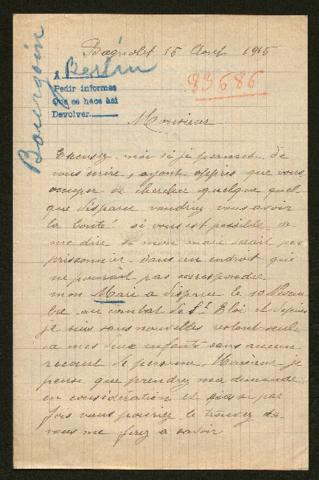 Bagnolet 15 Aout 1915
Bourgoin
A Berlin
Pedir informes
Que se hace asi
Devolver
83686
Monsieur
Excusez moi si je permets de
vous écrire, ayant appris que vous
occupez de chercher quelque quel
que disparu voudriez vous avoir
la bonté si vous est possible de
me dire si mon mari serait pas
prisonnier dans un endroit que
ne pourait pas correspondre
mon Mari a disparu le 10
au combat de St Eloi et depuis
je suis sans nouvelles seule
a mes deux enfants sans aucun
de personne Monsieur je
pense que prendrez ma demande
en considération et si par
fois vous pouriez le trouvez de
vous me ferez a savoir